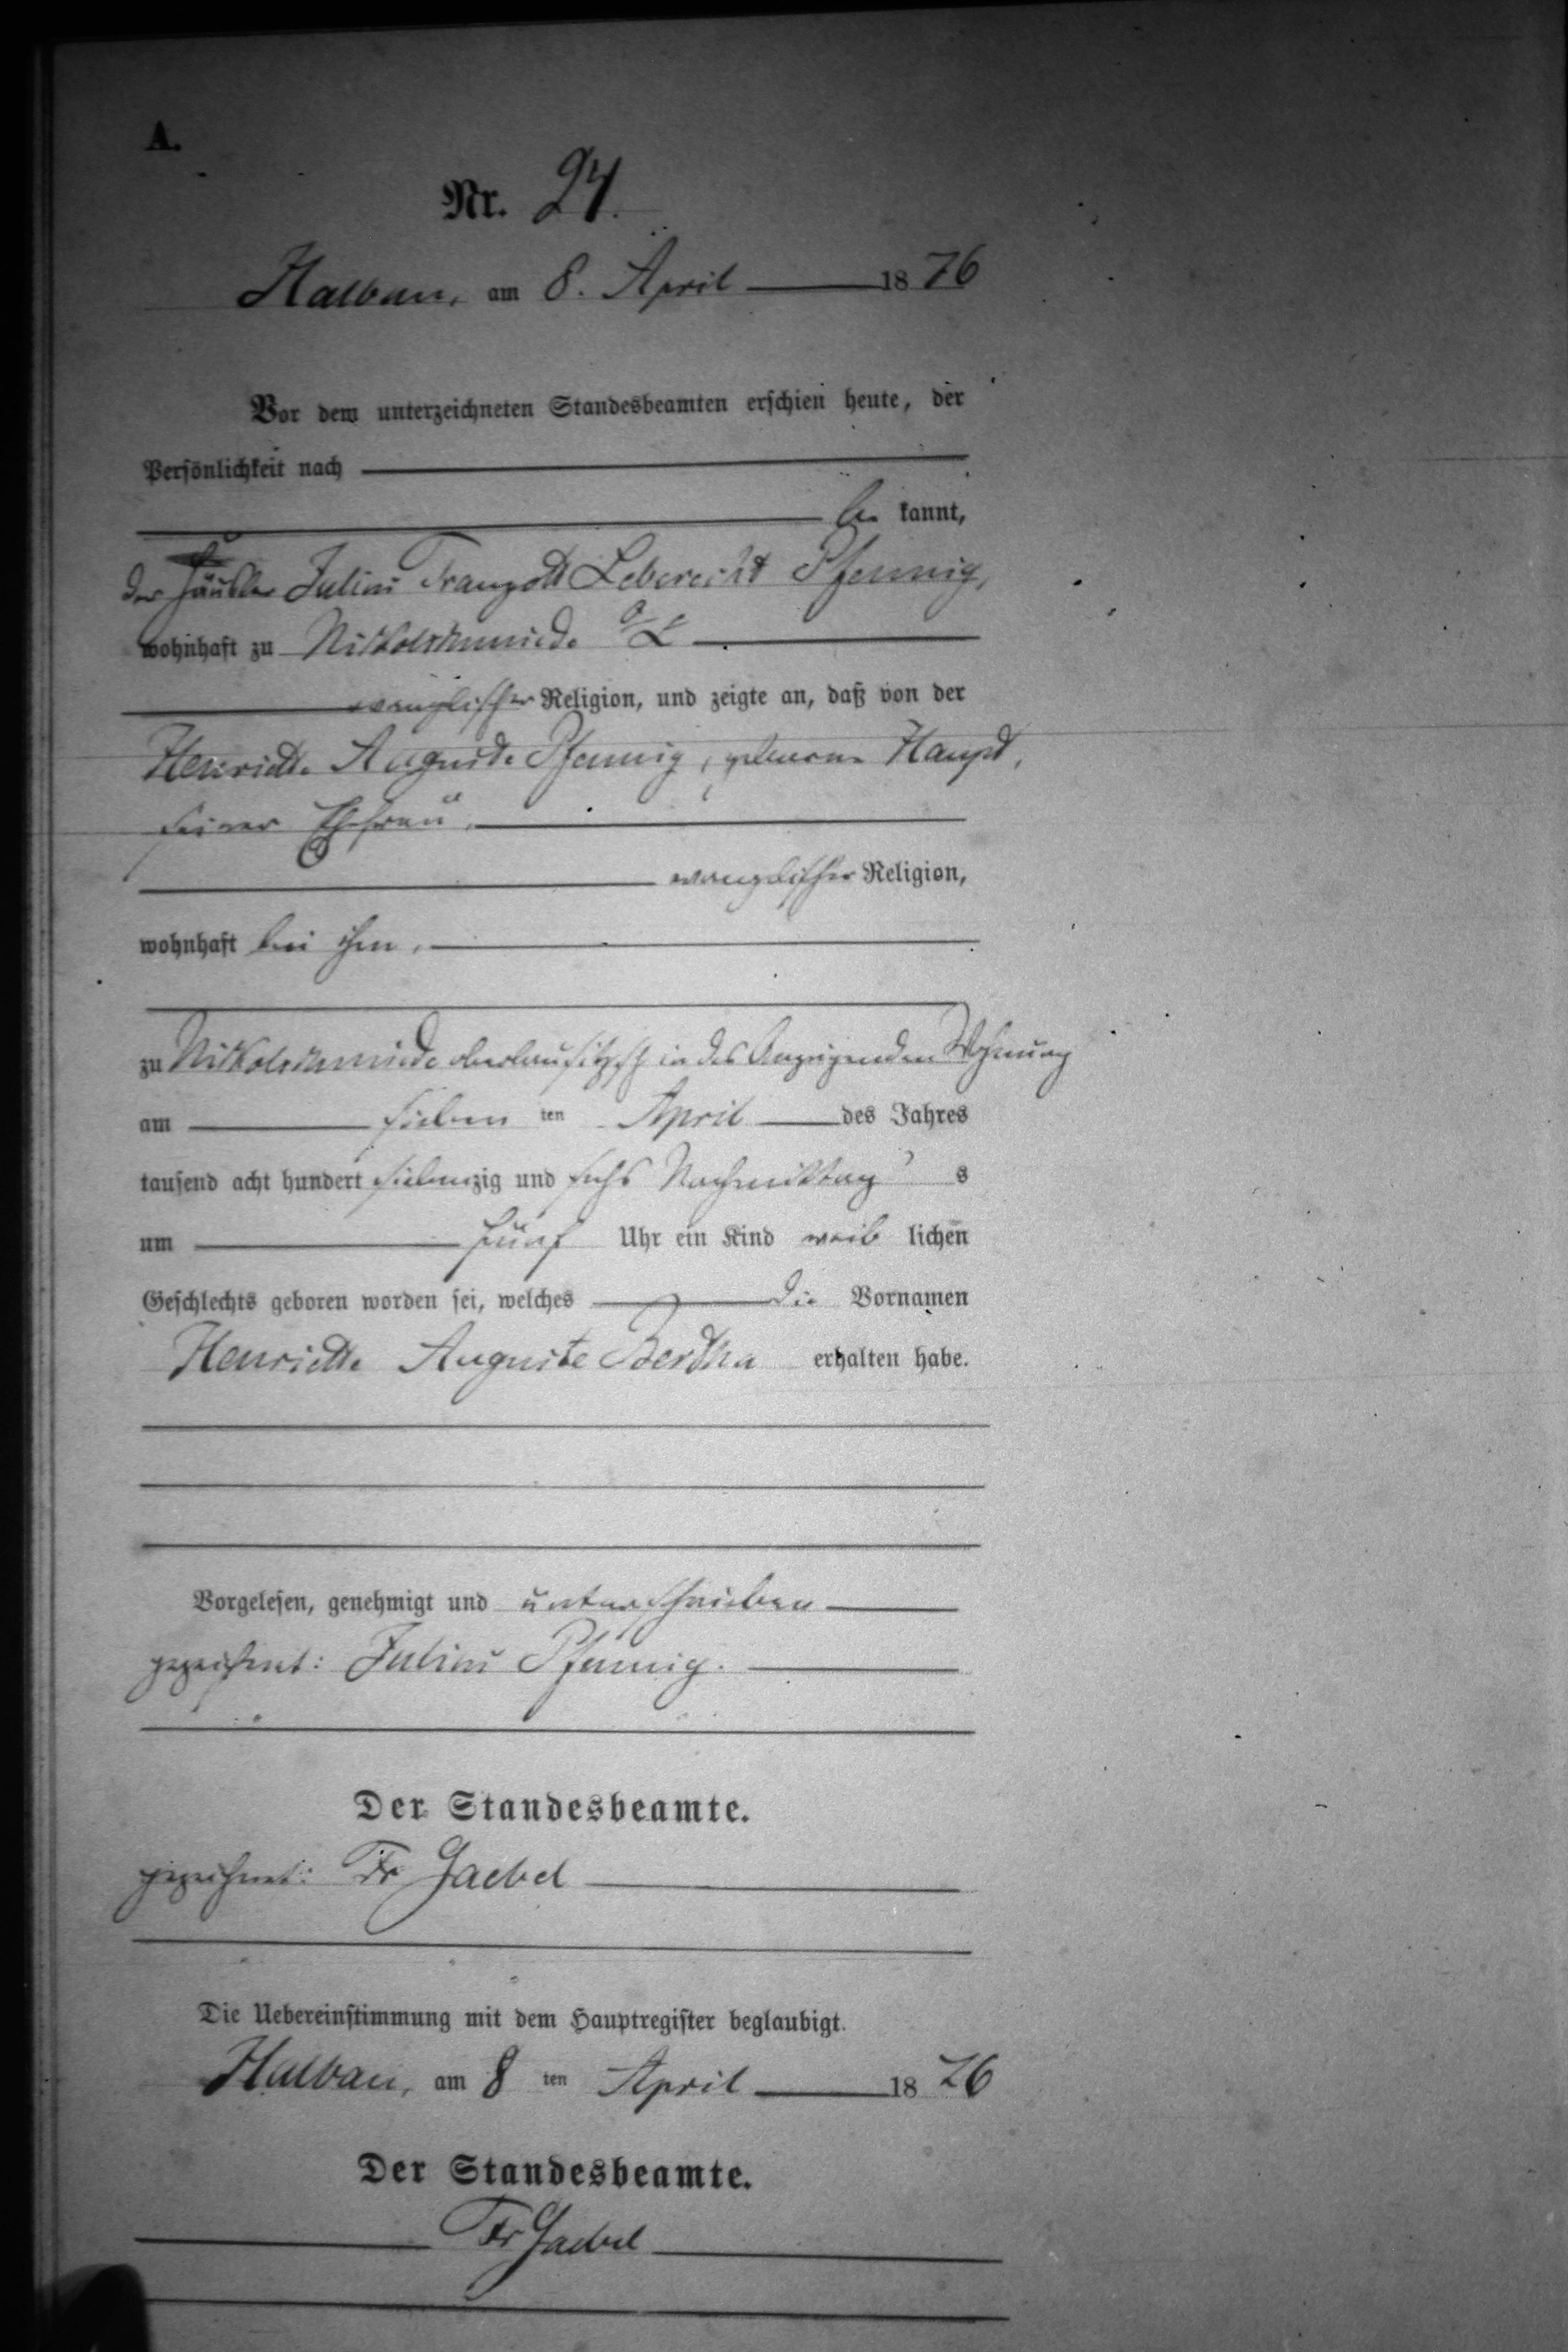 A.
Nr. 24.
Halbau, am 8. April 1876
Vor dem unterzeichneten Standesbeamten erschien heute, der
Persönlichkeit nach
be kannt,
der Häusler Julius Traugott Leberecht Pfennig,
wohnhaft zu Nikolschmiede O/L
evanglischer Religion, und zeigte an, daß von der
Henriette Auguste Pfennig, geborne Haupt,
seiner Ehefrau,
evanglischer Religion,
wohnhaft bei ihm,
zu Nikolschmiede oberlausitzsch in des Anzeigenden Wohnung
am sieben ten April des Jahres
tausend acht hundert siebenzig und sechs Nachmittag s
um fünf Uhr ein Kind weib lichen
Geschlechts geboren worden sei, welches die Vornamen
Henriette Auguste Bertha erhalten habe.
Vorgelesen, genehmigt und unterschrieben
gezeichnet: Julius Pfennig.
Der Standesbeamte.
gezeichnet: Fr Gaebel
Die Uebereinstimmung mit dem Hauptregister beglaubigt.
Halbau, am 8 ten April 1876
Der Standesbeamte.
Fr Gaebel